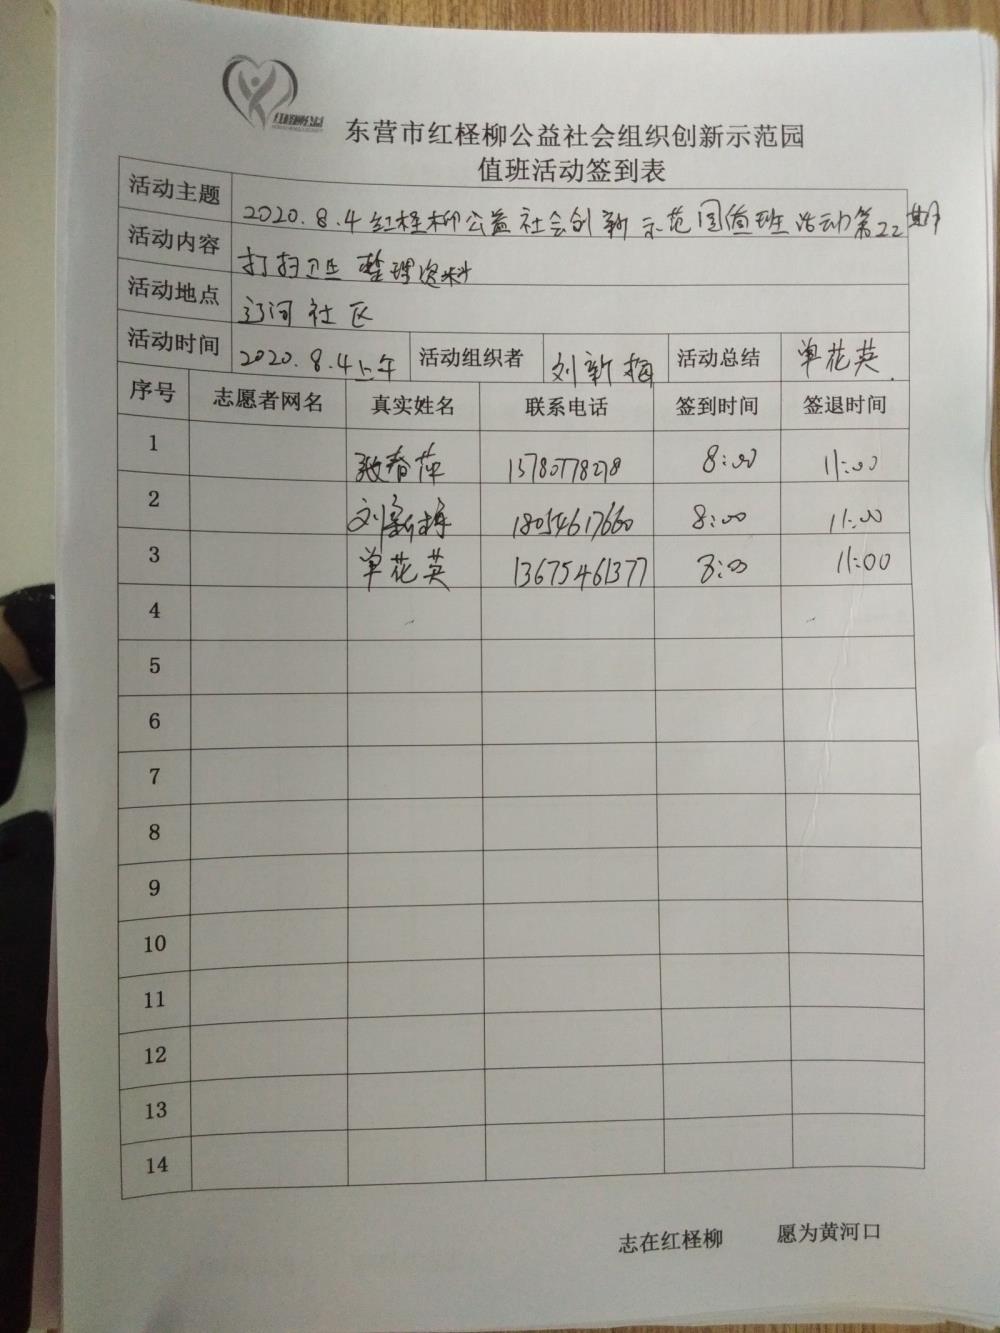 红柽柳公益
东营市红柽柳公益社会组织创新示范园
值班活动签到表
活动主题 2020.8.4红柽柳公益社会创新示范园值班活动第22期
活动内容 打扫卫生 整理资料
活动地点 辽河社区
活动时间 2020.8.4上午 活动组织者 刘新梅 活动总结 单花英
序号 志愿者网名 真实姓名 联系电话 签到时间 签退时间
1 春萍 8:00 11:00
2 刘新梅 18054617660 8:00 11:00
3 单花英 13675461377 8:00 11:00
4
5
6
7
8
9
10
11
12
13
14
志在红柽柳 愿为黄河口